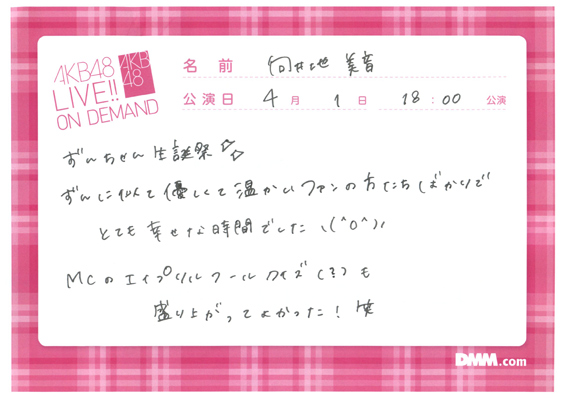 AKB48
LIVE!!
ON DEMAND
AKB
48
名前 向井地 美音
公演日 4月 1日 18:00 公演
ずんちゃん生誕祭☆☆
ずんに似て優しくて温かいファンの方たちばかりで
とても幸せな時間でした \(^o^)/
MCのエイプリルフールクイズ(?)も
盛り上がってよかった!笑
DMM.com